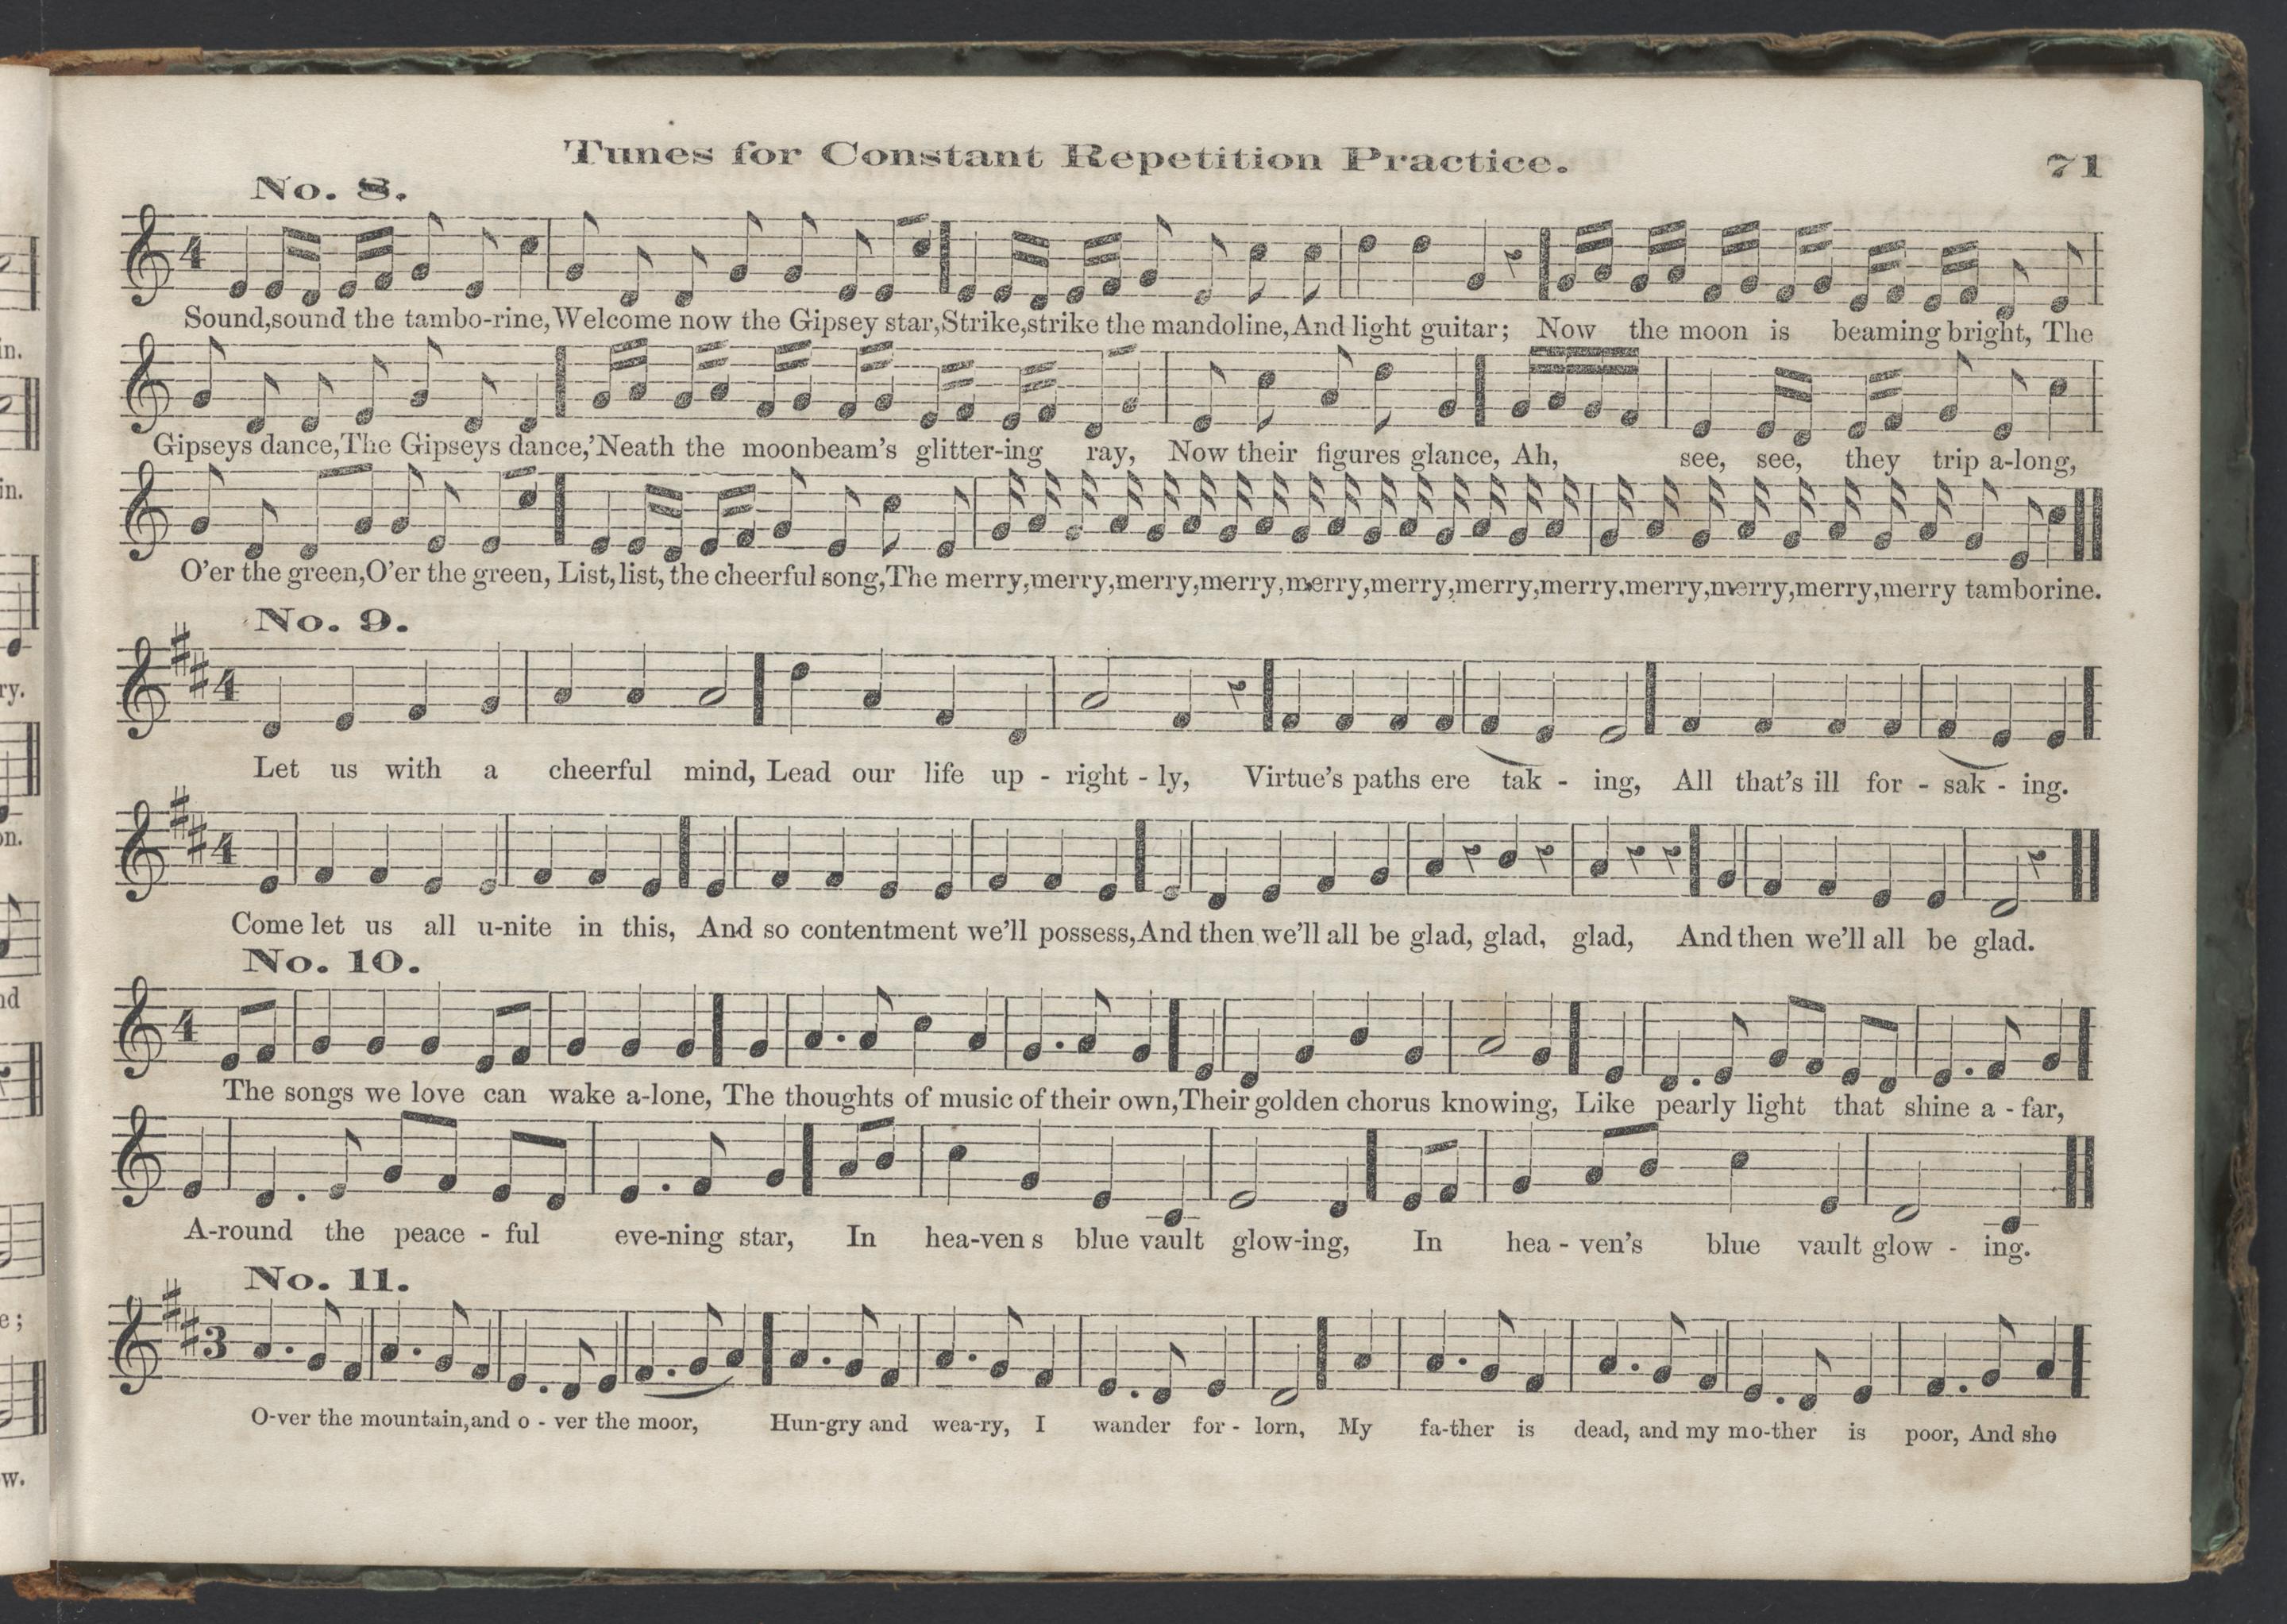 Tunes for Constant Repetition Practice. 71
No. 8.
4
Sound,sound the tambo-rine,Welcome now the Gipsey star,Strike,strike the mandoline,And light guitar; Now the moon is beaming bright, The
Gipseys dance,The Gipseys dance,'Neath the moonbeam's glitter-ing ray, Now their figures glance, Ah, see, see, they trip a-long,
O'er the green,O'er the green, List,list, the cheerful song,The merry,merry,merry,merry,merry,merry,merry,merry,merry,merry,merry,merry tamborine.
No. 9.
4
Let us with a cheerful mind, Lead our life up - right - ly, Virtue's paths ere tak - ing, All that's ill for - sak - ing.
4
Come let us all u-nite in this, And so contentment we'll possess,And then we'll all be glad, glad, glad, And then we'll all be glad.
No. 10.
4
The songs we love can wake a-lone, The thoughts of music of their own,Their golden chorus knowing, Like pearly light that shine a - far,
A-round the peace - ful eve-ning star, In hea-ven s blue vault glow-ing, In hea - ven's blue vault glow - ing.
No. 11.
3
O-ver the mountain,and o - ver the moor, Hun-gry and wea-ry, I wander for - lorn, My fa-ther is dead, and my mo-ther is poor, And she
in.
in.
ry.
on.
nd
e;
w.